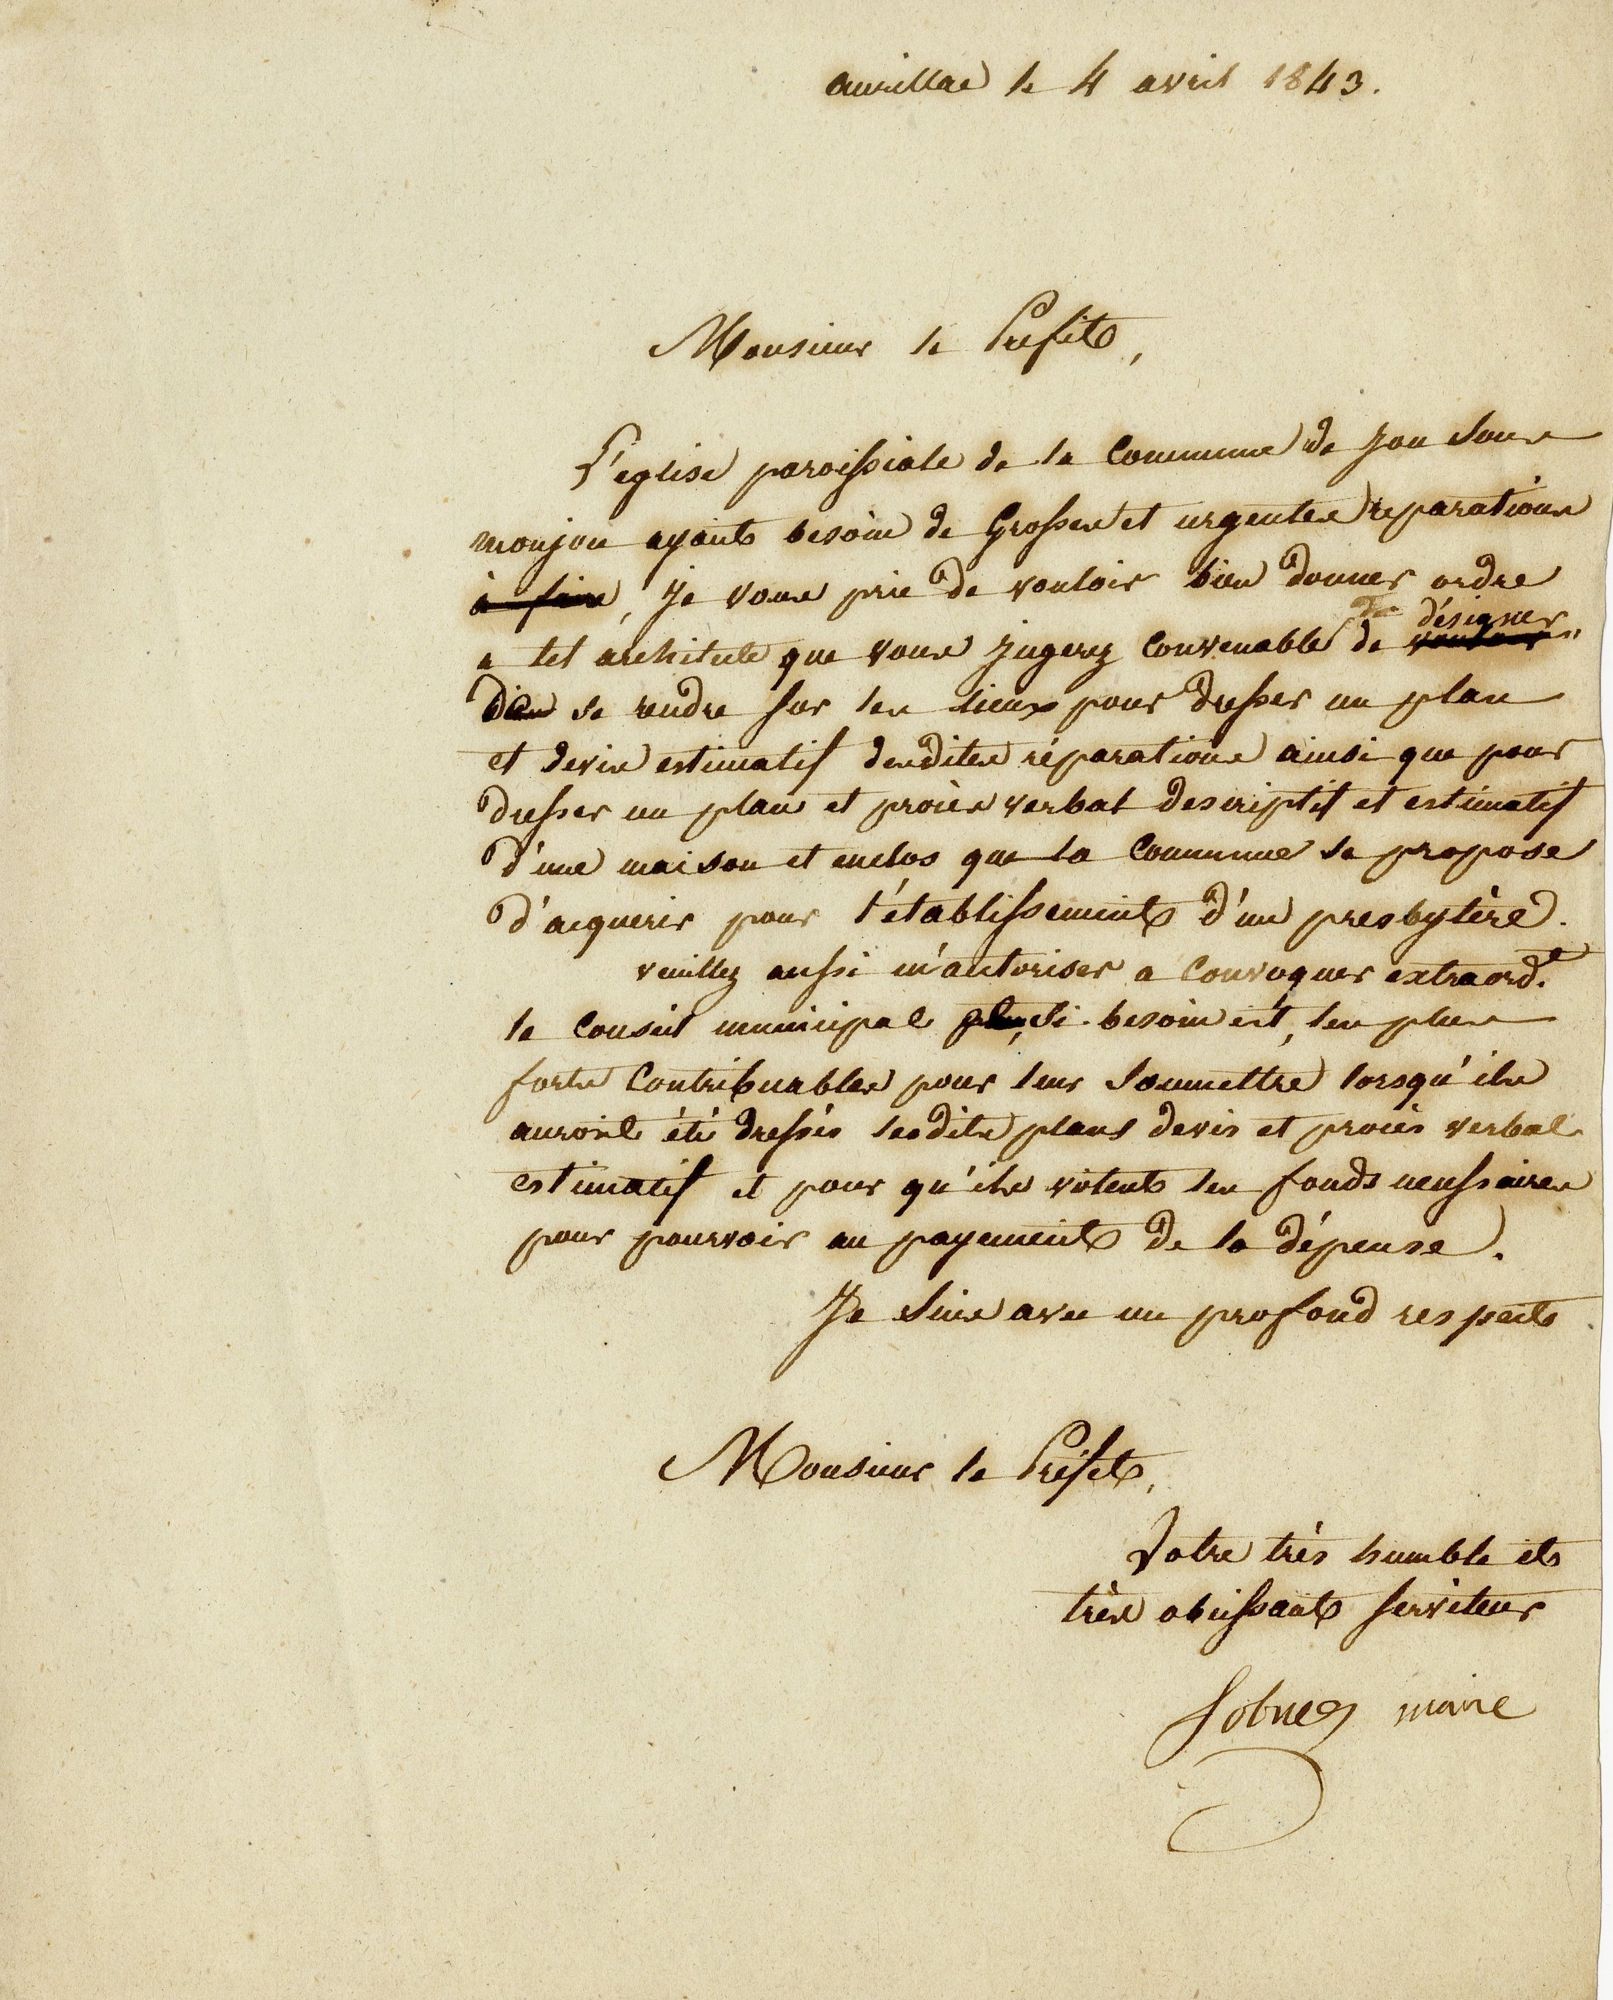 aurillac le 4 avril 1843.
Monsieur le Prefet,
L'eglise paroissiale de la Commune de Jou Sous
monjou ayant besoin de Grosses et urgentes reparations
à faire, Je vous prie de vouloir bien donner ordre
a tel architecte que vous jugerez convenable de désigner
de se rendre sur les lieux pour dresser un plan
et devis estimatif desdites réparations ainsi que pour
dresser un plan et procès verbal descriptif et estimatif
d'une maison et enclos que la Commune se propose
d'acquerir pour l'établissement d'un presbytère.
veuillez aussi m'autoriser a Convoquer extraord.t
le Conseil municipal, Si besoin est, les plus
forts Contribuables pour leur Soumettre lorsqu'ils
auront été dressés lesdits plans devis et procès verbal
estimatif et pour qu'ils votent les fonds necessaires
pour pourvoir au payement de la dépense.
Je Suis avec un profond respect
Monsieur le Préfet,
Votre très humble et
très obeissant Serviteur
maire